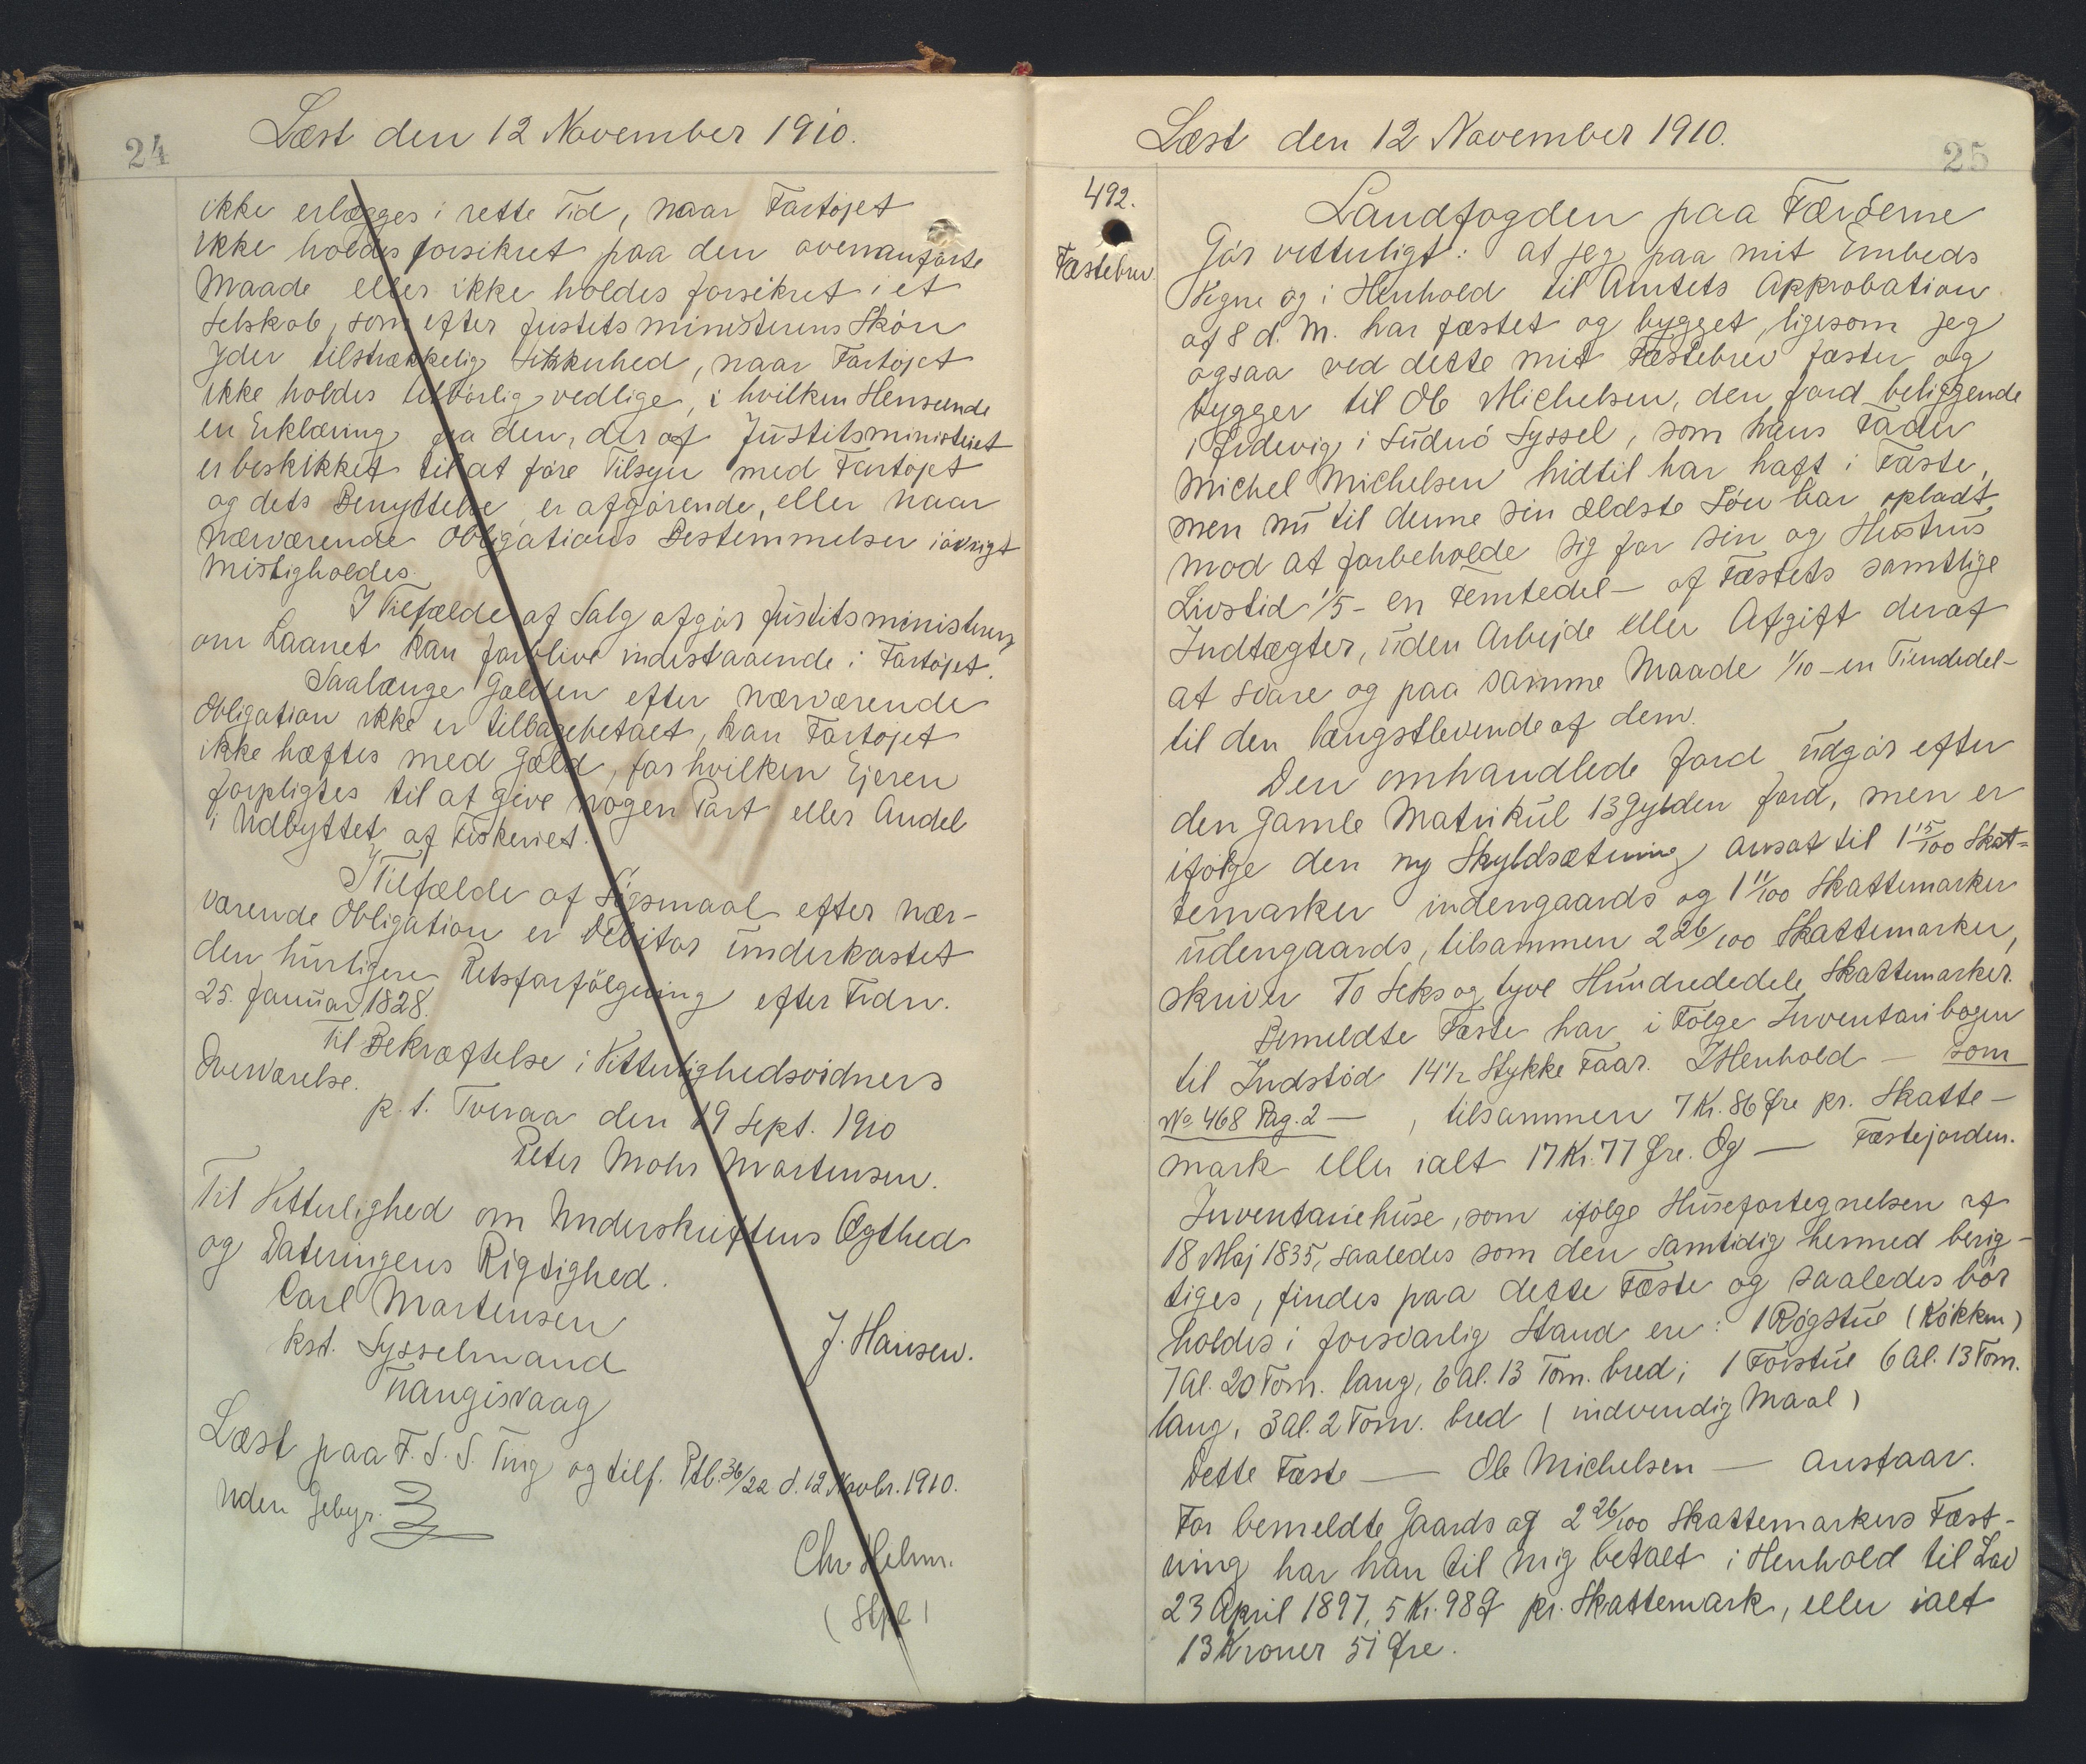 24
Læst den 12 November 1910.
ikke erlægges i rette Tid, naar Fartøjet
ikke holdes forsikret paa den ovenanførte
Maade eller ikke holdes forsikret i et
Selskab, som efter Justitsministerens Skøn
yder tilstrækkelig Sikkerhed, naar Fartøjet
ikke holdes tilbørlig vedlige, i hvilken Henseende
en Erklæring fra den, der af Justitsministeriet
er beskikket til at føre Tilsyn med Fartøjet
og dets Benyttelse er afgørende, eller naar
nærværende Obligations Bestemmelser iøvrigt
misligholdes.
I Tilfælde af Salg afgør Justitsministeren,
om Laanet kan forblive indestaaende i Fartøjet.
Saalænge Gælden efter nærværende
Obligation ikke er tilbagebetalt, kan Fartøjet
ikke hæftes med Gæld, for hvilken Ejeren
forpligtes til at give nogen Part eller Andel
i Udbyttet af Fiskeriet.
I Tilfælde af Søgsmaal efter nær-
værende Obligation er Debitor underkastet
den hurtigere Retsforfølgning efter Frdn.
25. Januar 1828.
Til Bekræftelse i Vitterlighedsvidners
Overværelse.
p. t. Tveraa den 19 Sept. 1910
Peter Mohr Mortensen.
Til Vitterlighed om Underskriftens Ægthed
og Dateringens Rigtighed.
Carl Mortensen
kst. Sysselmand
Trangisvaag
J. Hansen.
Læst paa F. S. S. Ting og tilf. Ptb. 36/22 d. 12 Novbr. 1910.
Uden Gebyr.
Chr Helm.
(Stpl)
25
Læst den 12 November 1910.
492.
Fæstebrev
Landfogden paa Færøerne
Gør vitterligt: at jeg paa mit Embeds
Vegne og i Henhold til Amtets Approbation
af 8 d. M. har fæstet og bygget, ligesom jeg
ogsaa ved dette mit Fæstebrev fæster og
bygger til Ole Michelsen, den Jord beliggende
i Ørdevig i Suderø Syssel, som hans Fader
Michel Michelsen hidtil har haft i Fæste,
men nu til denne sin ældste Søn har opladt,
mod at forbeholde sig for sin og Hustrus
Livstid 1/5 - en Femtedel - af Fæstets samtlige
Indtægter, uden Arbejde eller Afgift deraf
at svare og paa samme Maade 1/10 - en Tiendedel -
til den længstlevende af dem.
Den omhandlede Jord udgør efter
den gamle Matrikul 13 Gylden Jord, men er
ifølge den ny Skyldsætning ansat til 1 15/100 Skat=
temarker indengaards og 1 11/100 Skattemarker
udengaards, tilsammen 2 26/100 Skattemarker,
skriver To Seks og tyve Hundrededele Skattemarker.
Bemeldte Fæste har i Følge Inventaribogen
til Indstød 14 1/2 Stykke Faar. I Henhold — som
No 468 Pag. 2 — , tilsammen 7 Kr. 86 Øre pr. Skatte-
mark eller ialt 17 Kr. 77 Øre. Og — Fæstejorden.
Inventariehuse, som ifølge Husefortegnelsen af
18 Maj 1835, saaledes som den samtidig hermed berig-
tiges, findes paa dette Fæste og saaledes bør
holdes i forsvarlig Stand ere: 1 Røgstue (Køkken)
7 Al. 20 Tom. lang, 6 Al. 13 Tom. bred; 1 Forstue 6 Al. 13 Tom.
lang, 3 Al. 2 Tom. bred (indvendig Maal)
Dette Fæste — Ole Michelsen — anstaar.
For bemeldte Gaards og 2 26/100 Skattemarkers Fæst-
ning har han til mig betalt i Henhold til Lov
23 April 1897, 5 Kr. 98 Ø pr. Skattemark, eller ialt
13 Kroner 51 Øre.